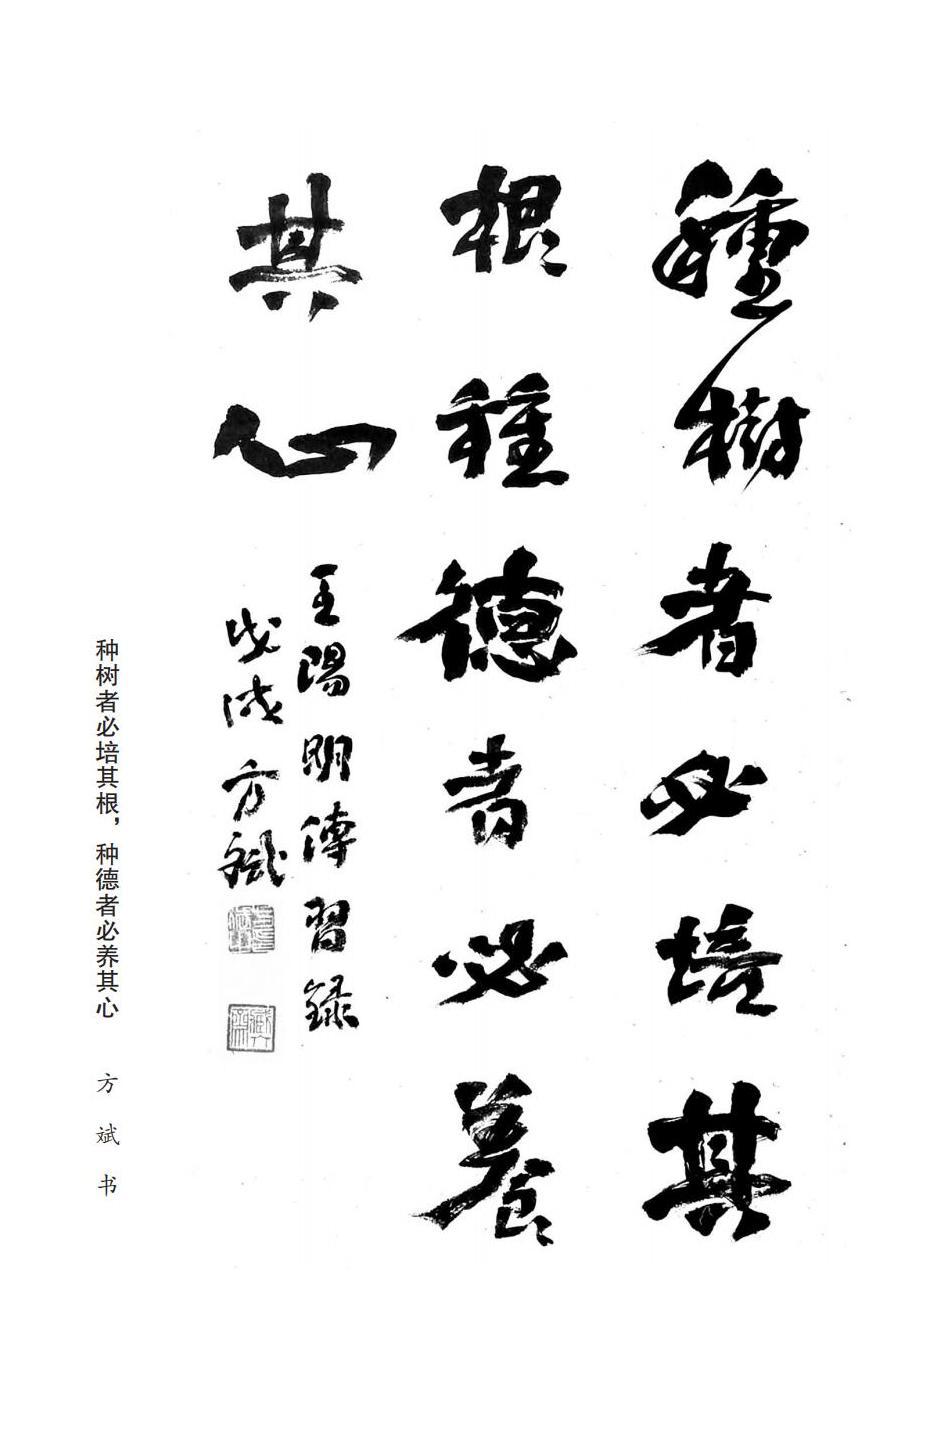 種樹者必培其
根種德者必養
其心
王陽明傳習録
戊戌方斌
种树者必培其根，种德者必养其心 方斌书